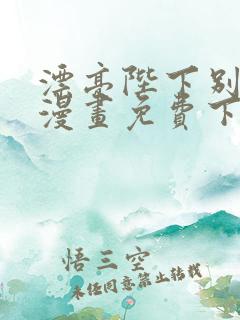 漂亮陛下别
漫畫免費下
悟三空
未经同意禁止转载